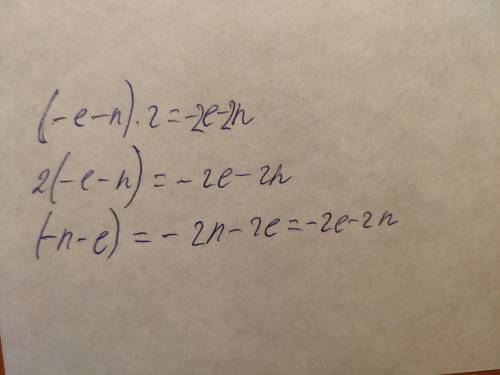 (-e-n)·2=-2e-2n
2(-e-n)=-2e-2n
(-n-e)=-2n-2e=-2e-2n